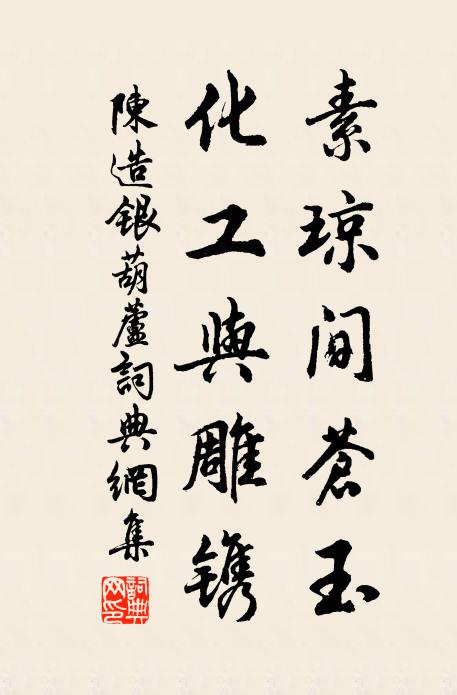 素琼间蒼玉
化工與雕镌
陳造銀葫蘆詞典網集
詞典网印